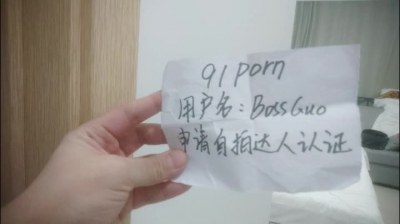 91porn
用户名：BossGuo
申请自拍达人认证